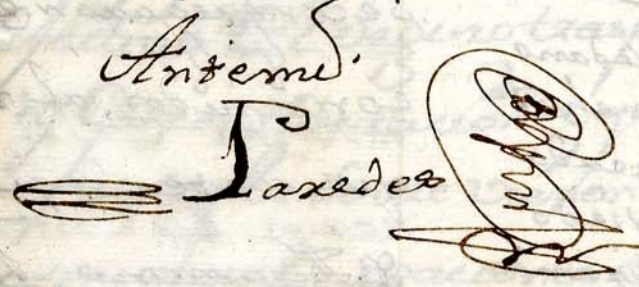 Antemi.
Paredes